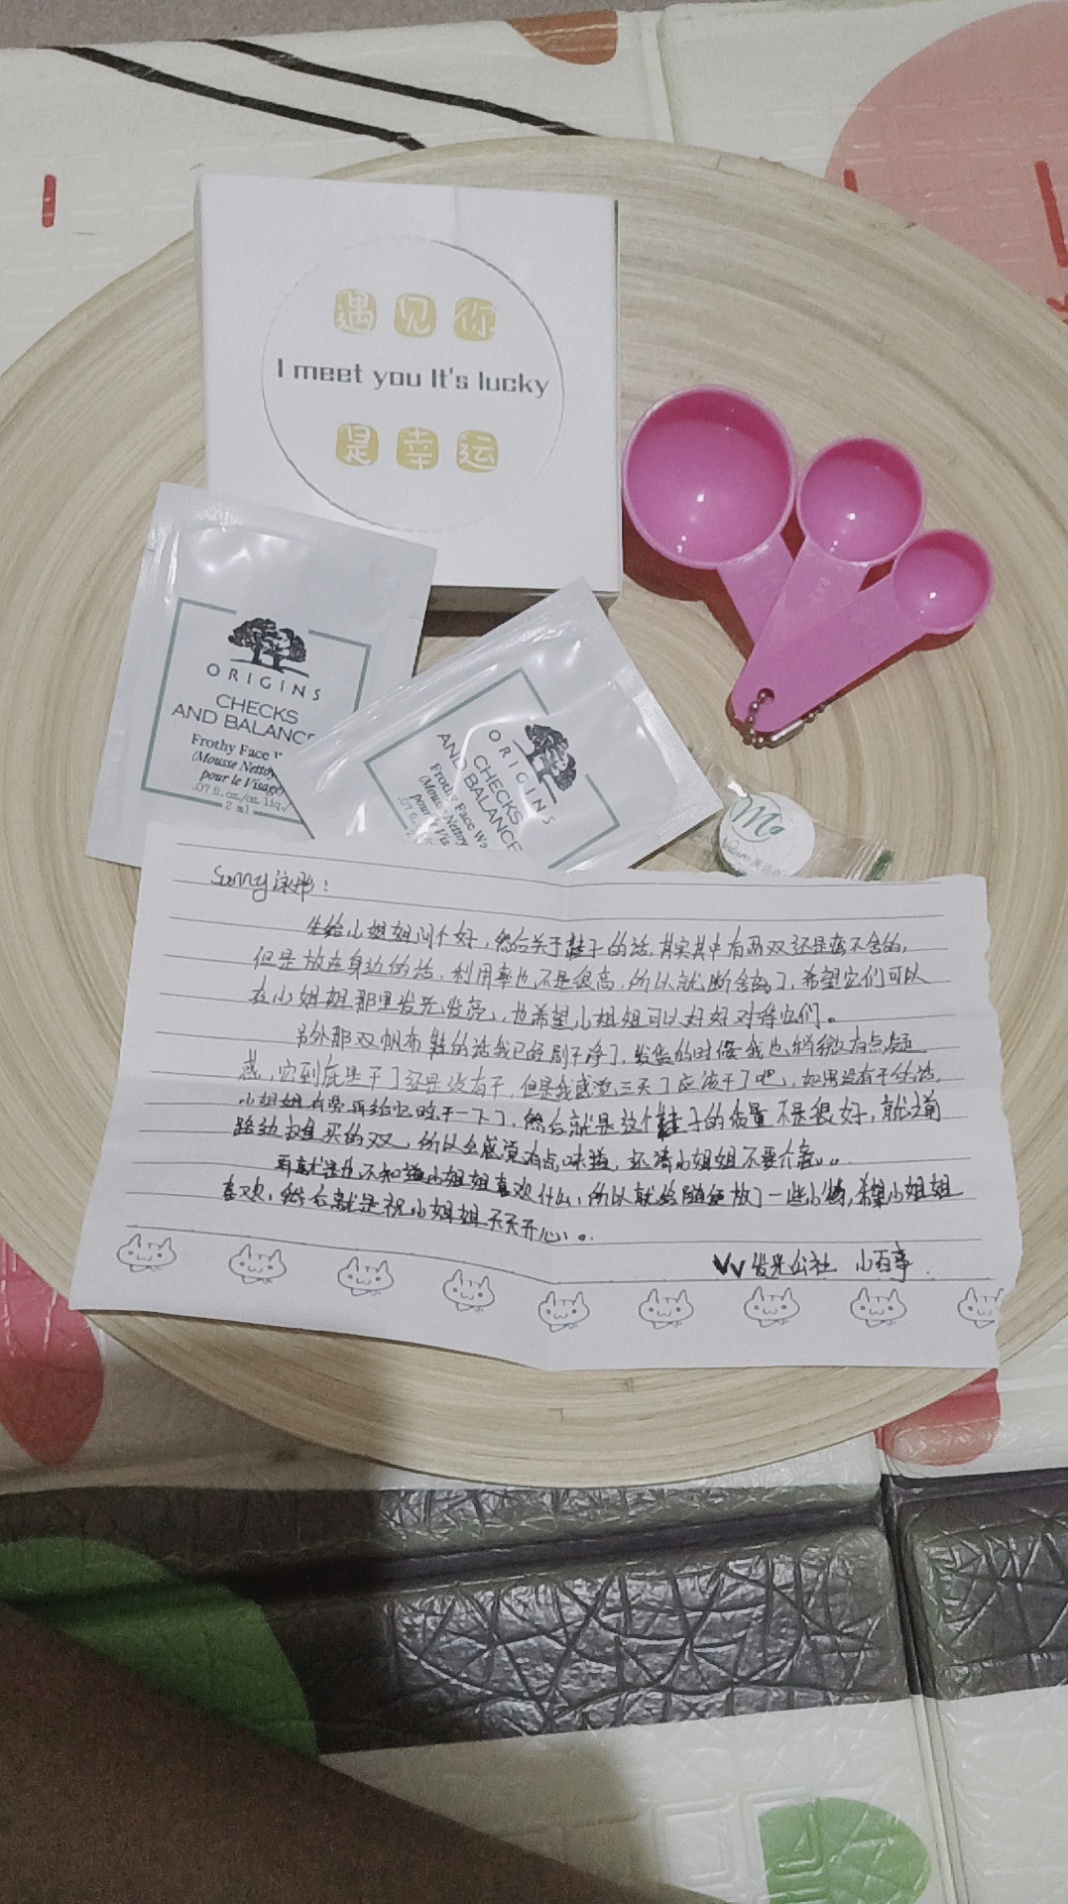 遇见你
I meet you It's lucky
是幸运
ORIGINS
CHECKS
AND BALANC
Frothy Face W
(Mousse Nettoy
pour le Visage)
.07 fl. oz./oz. liq./
2 ml
ORIGINS
CHECKS
AND BALANCE
Frothy Face Wa
(Mousse Nettoy
pour le Vis
Sunny
先给小姐姐问个好,然后关于鞋子的话,其实其中有两双还是蛮不舍的,
但是放在身边的话,利用率也不是很高,所以就断舍离了,希望它们可以
在小姐姐那里发光发亮,也希望小姐姐可以好好对待它们。
另外那双帆布鞋的话我已经刷干净了,发货的时候我也稍微有点疑
惑,它到底是干了还是没有干,但是我感觉三天了应该干了吧,如果没有干的话,
小姐姐有劳再给它晾干一下了,然后就是这个鞋子的质量不是很好,就之前
路边摊买的双,所以会感觉有点味道,还请小姐姐不要介意。。
再就是也不知道小姐姐喜欢什么,所以就给随便放了一些小物,希望小姐姐
喜欢,然后就是祝小姐姐天天开心。
VV发光公社 小百事